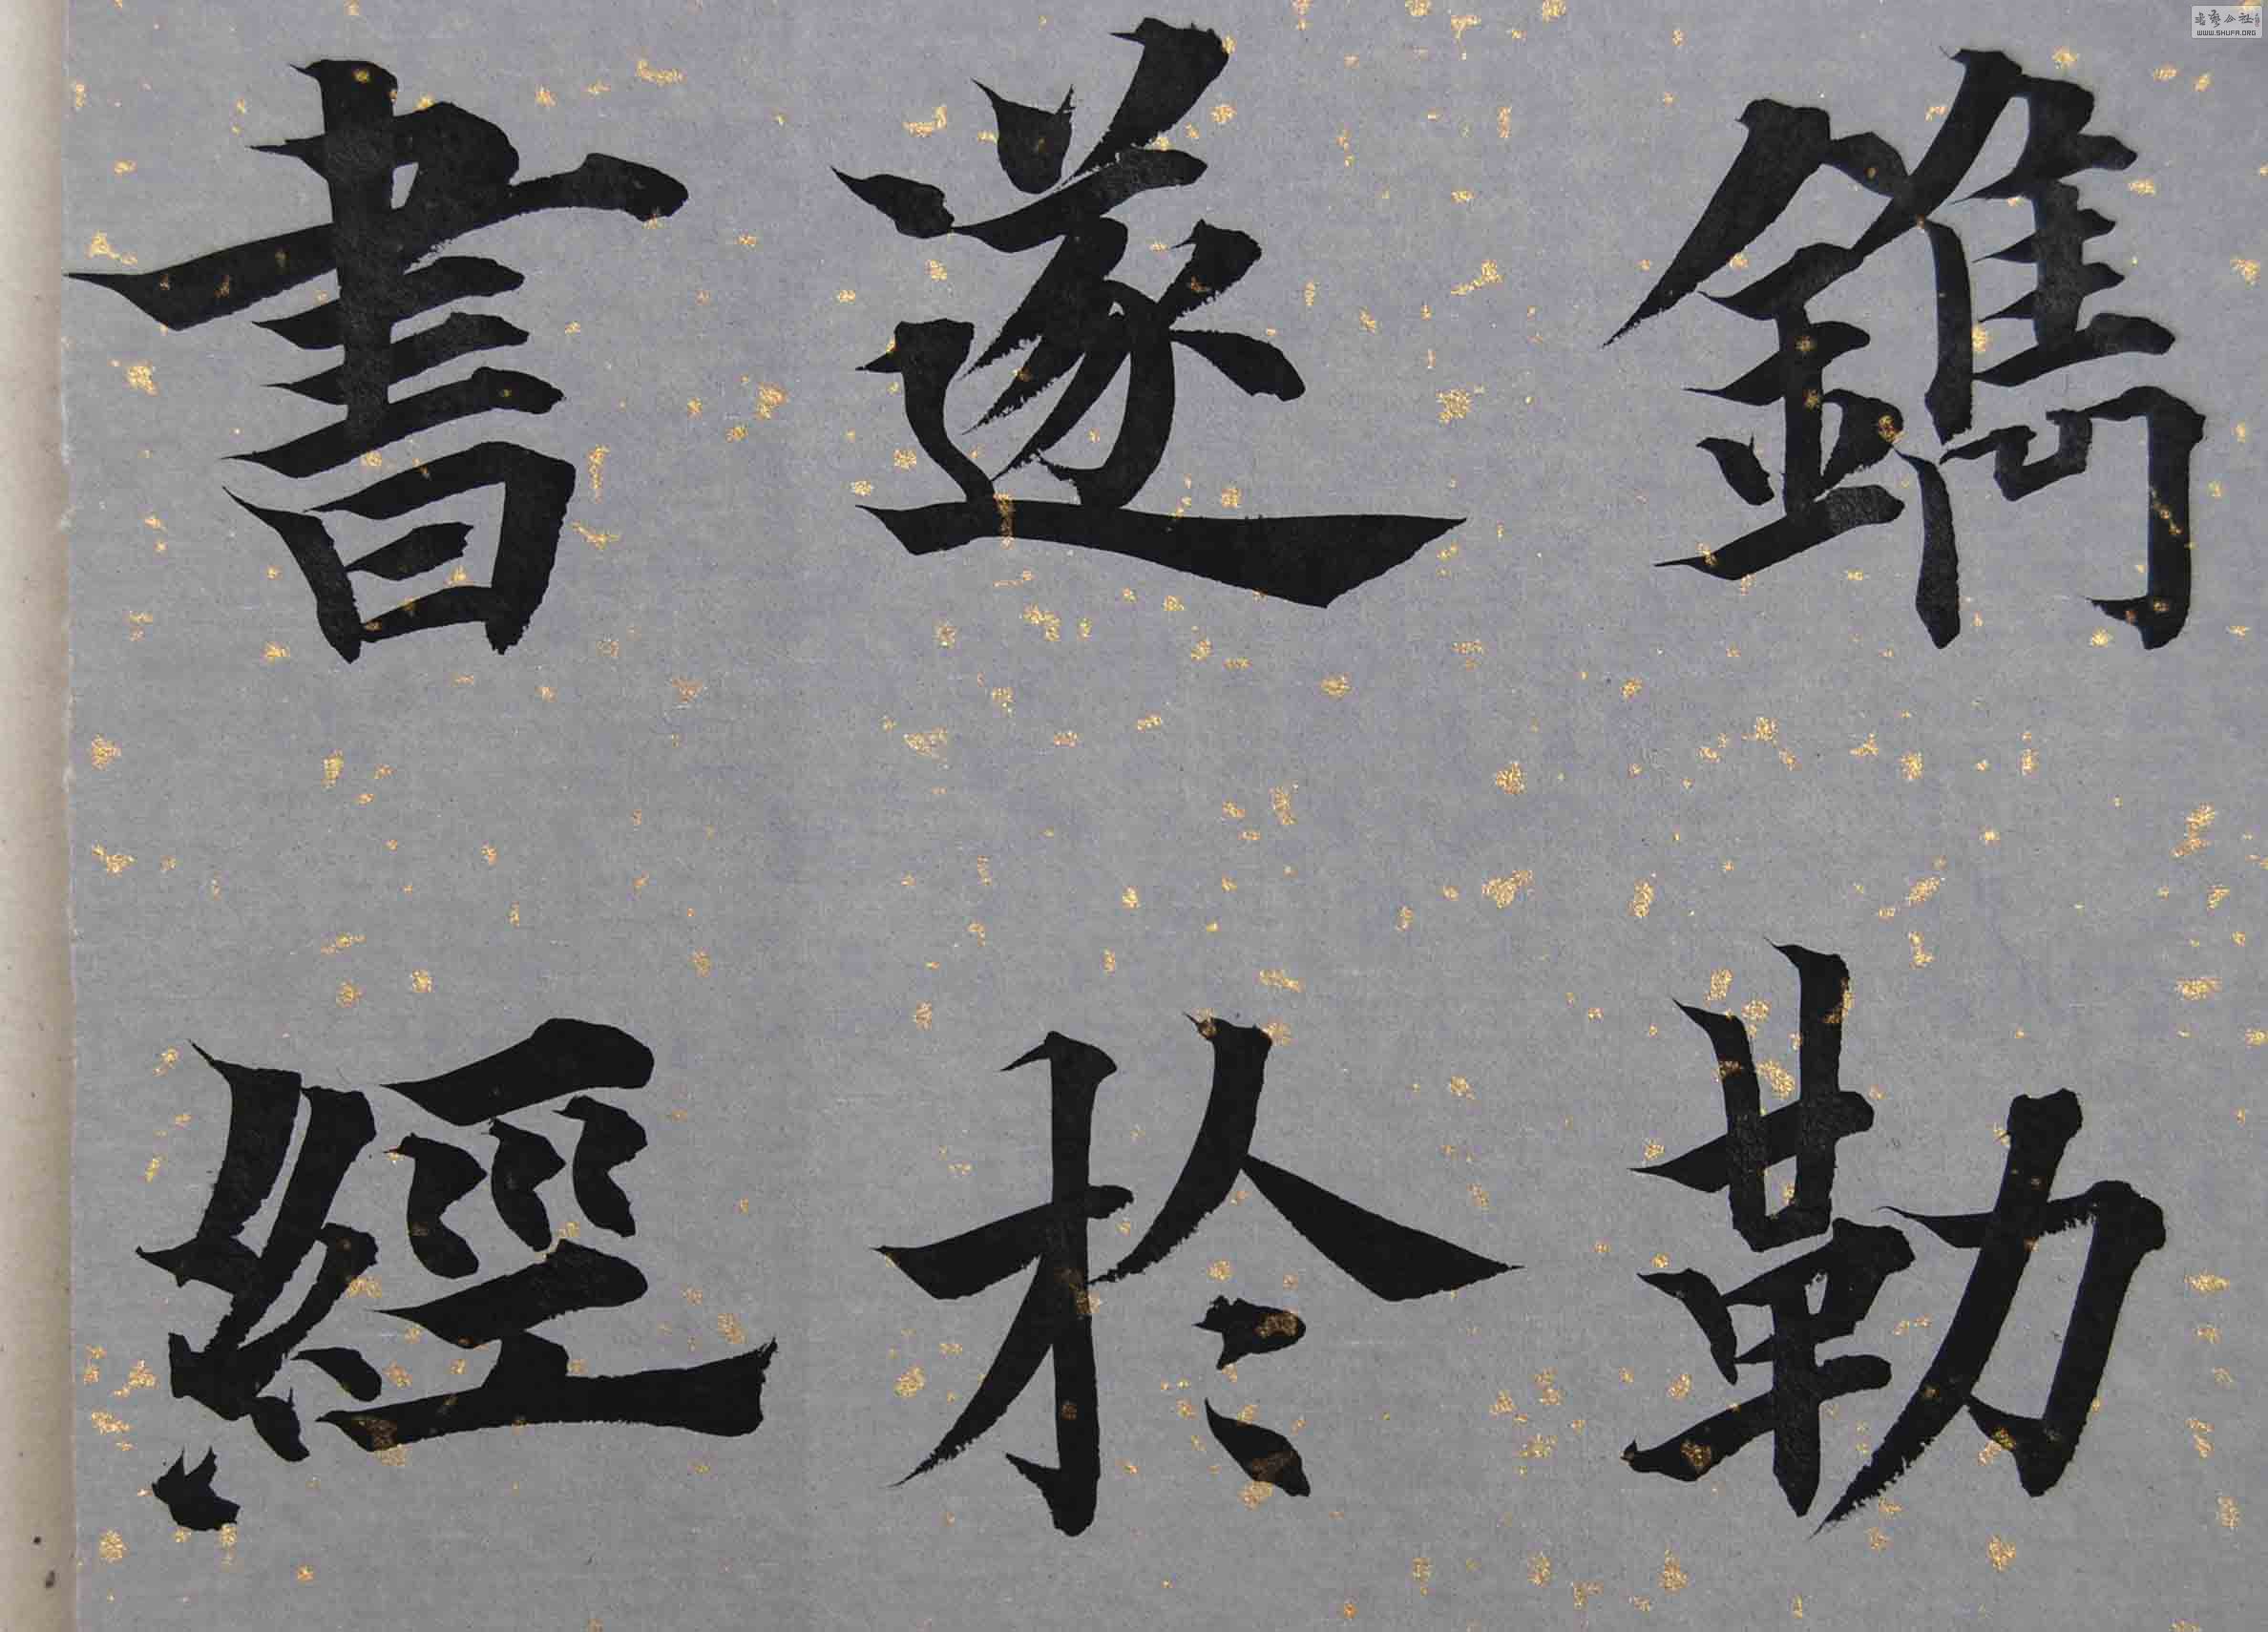 鐫勒
遂於
書經
书艺公社
WWW.SHUFA.ORG